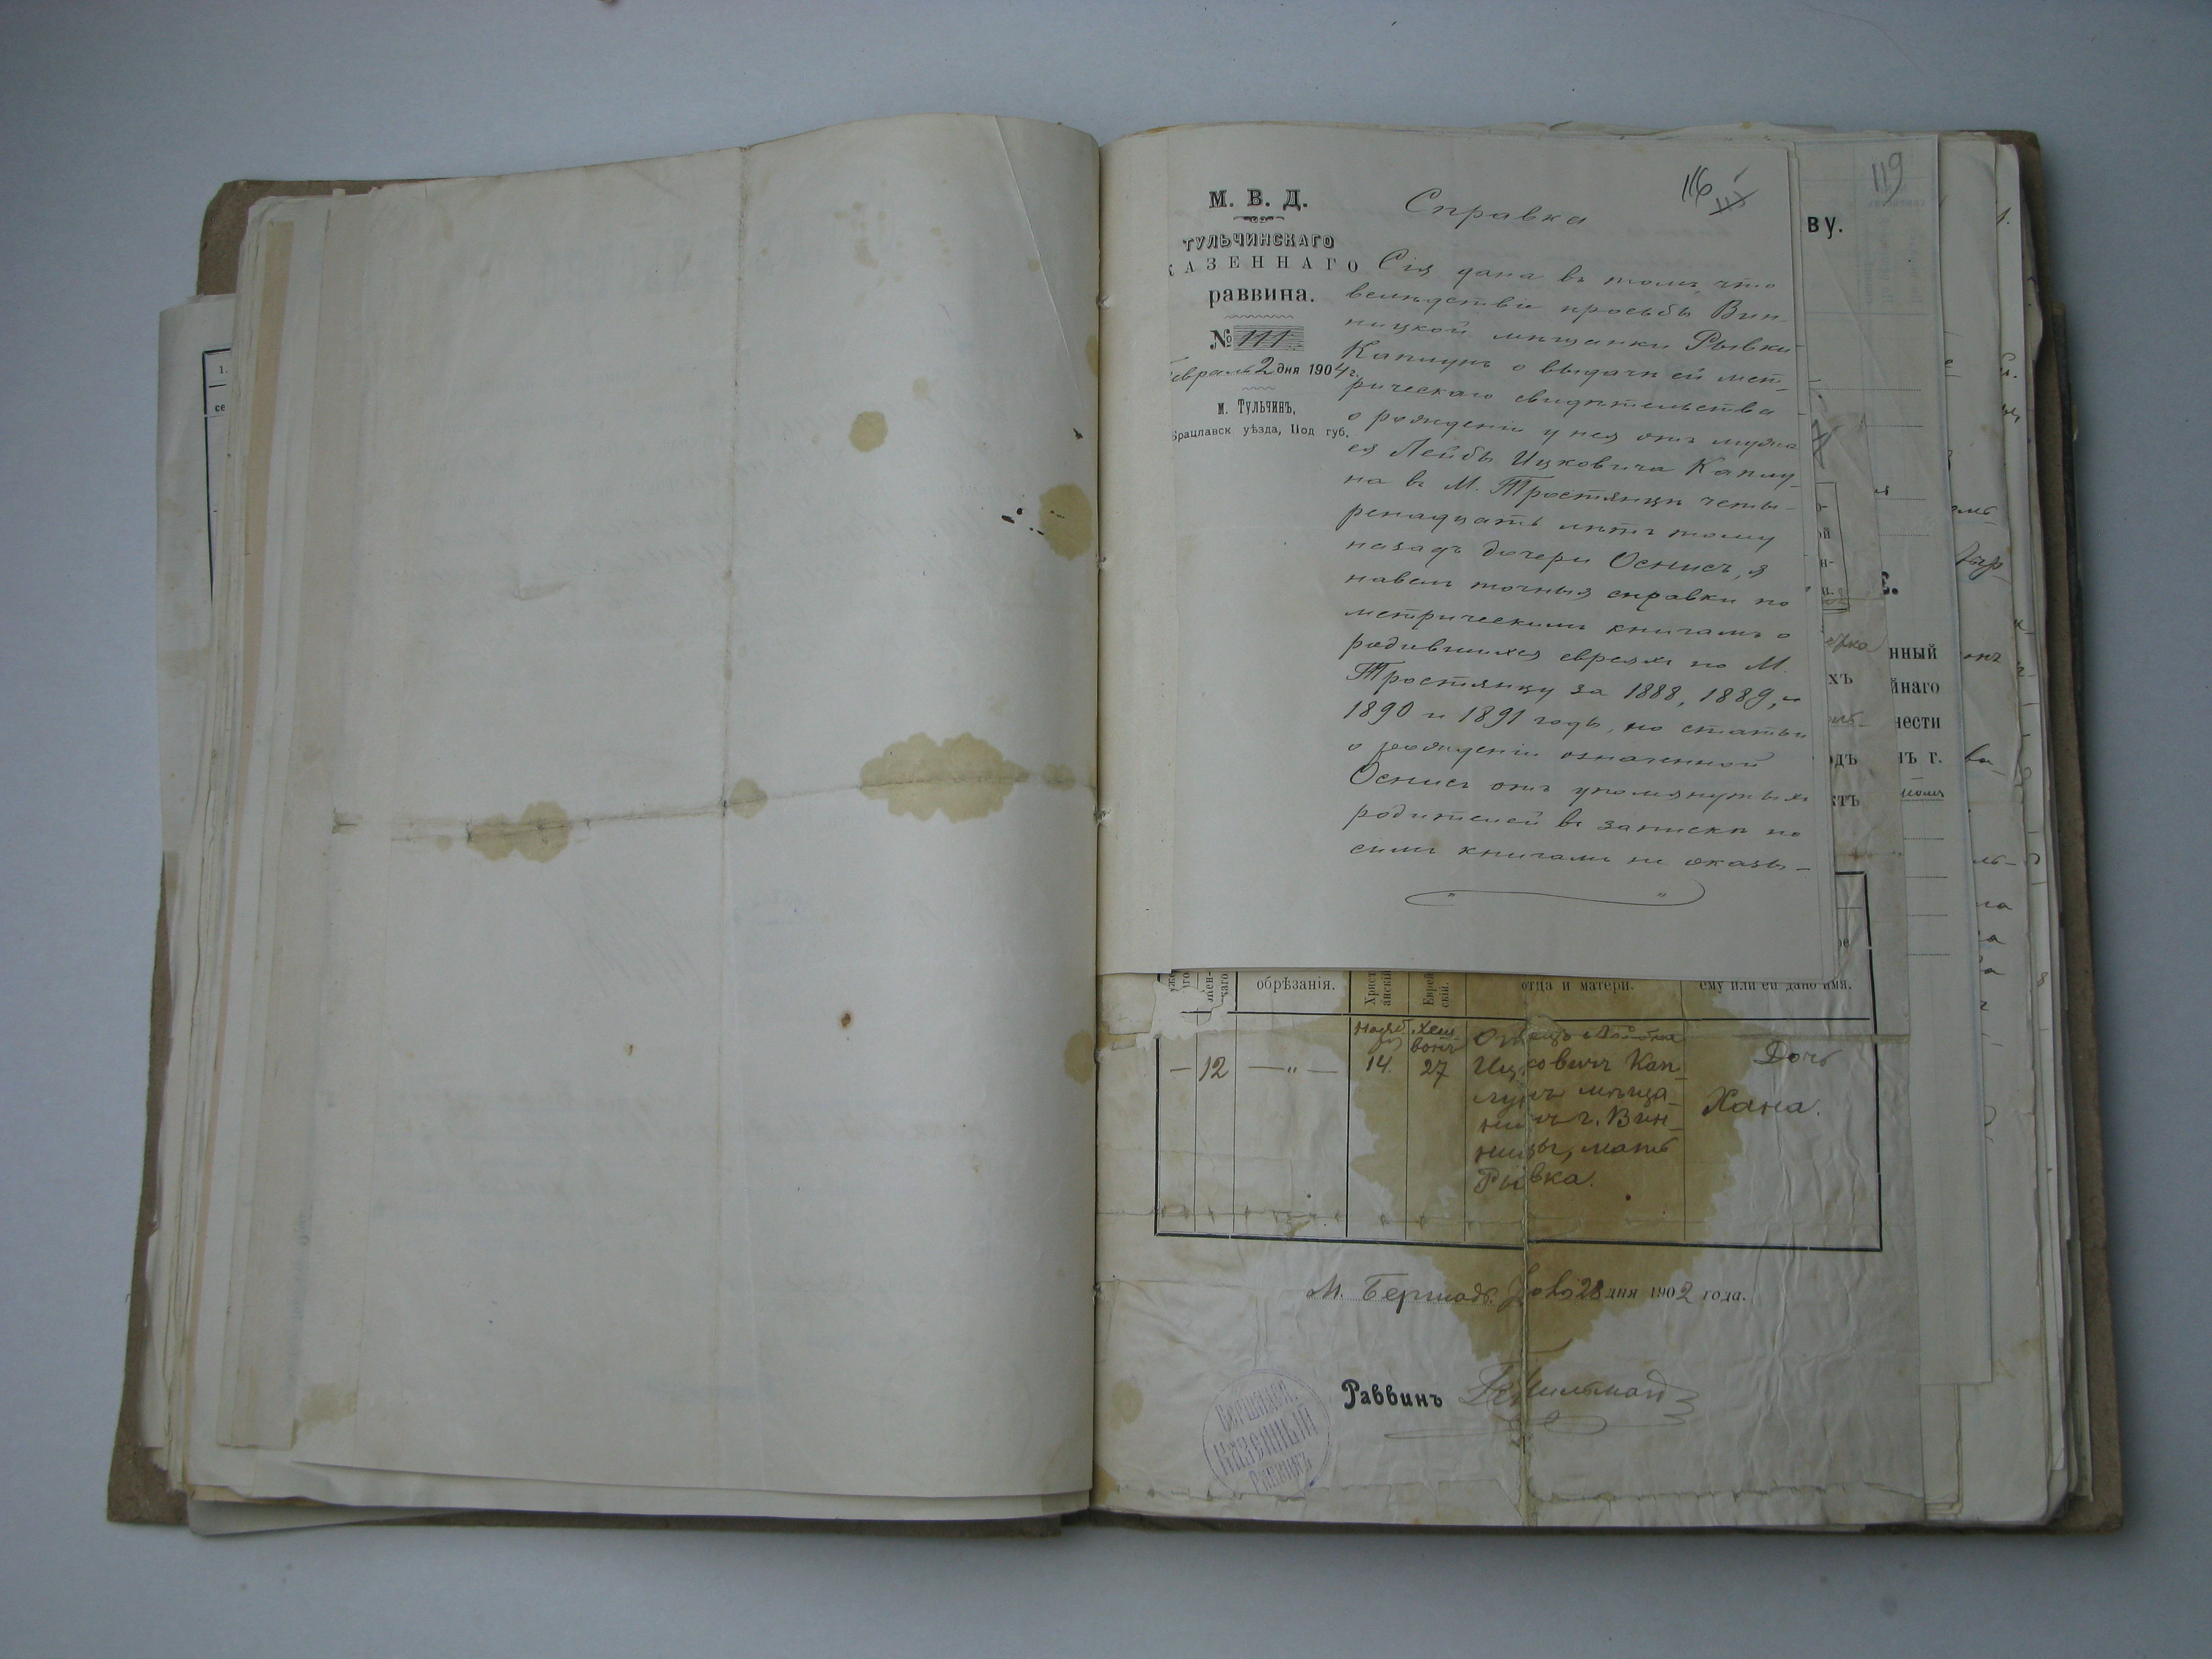 116
М. В. Д.
ТУЛЬЧИНСКАГО
КАЗЕННАГО
раввина.
№ 111
февраль 2 дня 1904 г.
м. Тульчинъ,
Брацлавск уѣзда, Под губ.
Справка
Сія дана въ томъ, что
вслѣдствіе просьбы Вин-
ницкой мѣщанки Рывки
Каплунъ о выдачи ей мет-
рическаго свидѣтельства
о рожденіи у нея отъ мужа
ея Лейбы Ицковича Каплу-
на въ М. Тростянцѣ четы-
ренадцать лѣтъ тому
назадъ дочери Оснись, я
навелъ точныя справки по
метрическимъ книгамъ о
родившихся евреяхъ по М.
Тростянцу за 1888, 1889, и
1890 и 1891 годъ, но статьи
о рожденіи означенной
Оснись отъ упомянутыхъ
родителей въ записки по
симъ книгамъ не оказы-
119
ву.
нный
йнаго
нести
нъ г.
хъ
одъ
ктъ
обрѣзанія.
Христ
анскій
Еврей
скій.
отца и матери.
ему или ей дано имя.
— 12 — „ —
14
Хеш
вонъ
27
Отецъ Лейба
Ицковичъ Кап-
лунъ мѣща-
нинъ г. Вин-
ницы, мать
Рывка.
Дочь
Хана.
М. Бершадь. 28 дня 1902 года.
Раввинъ
Бершадск.
Казенный
Раввинъ